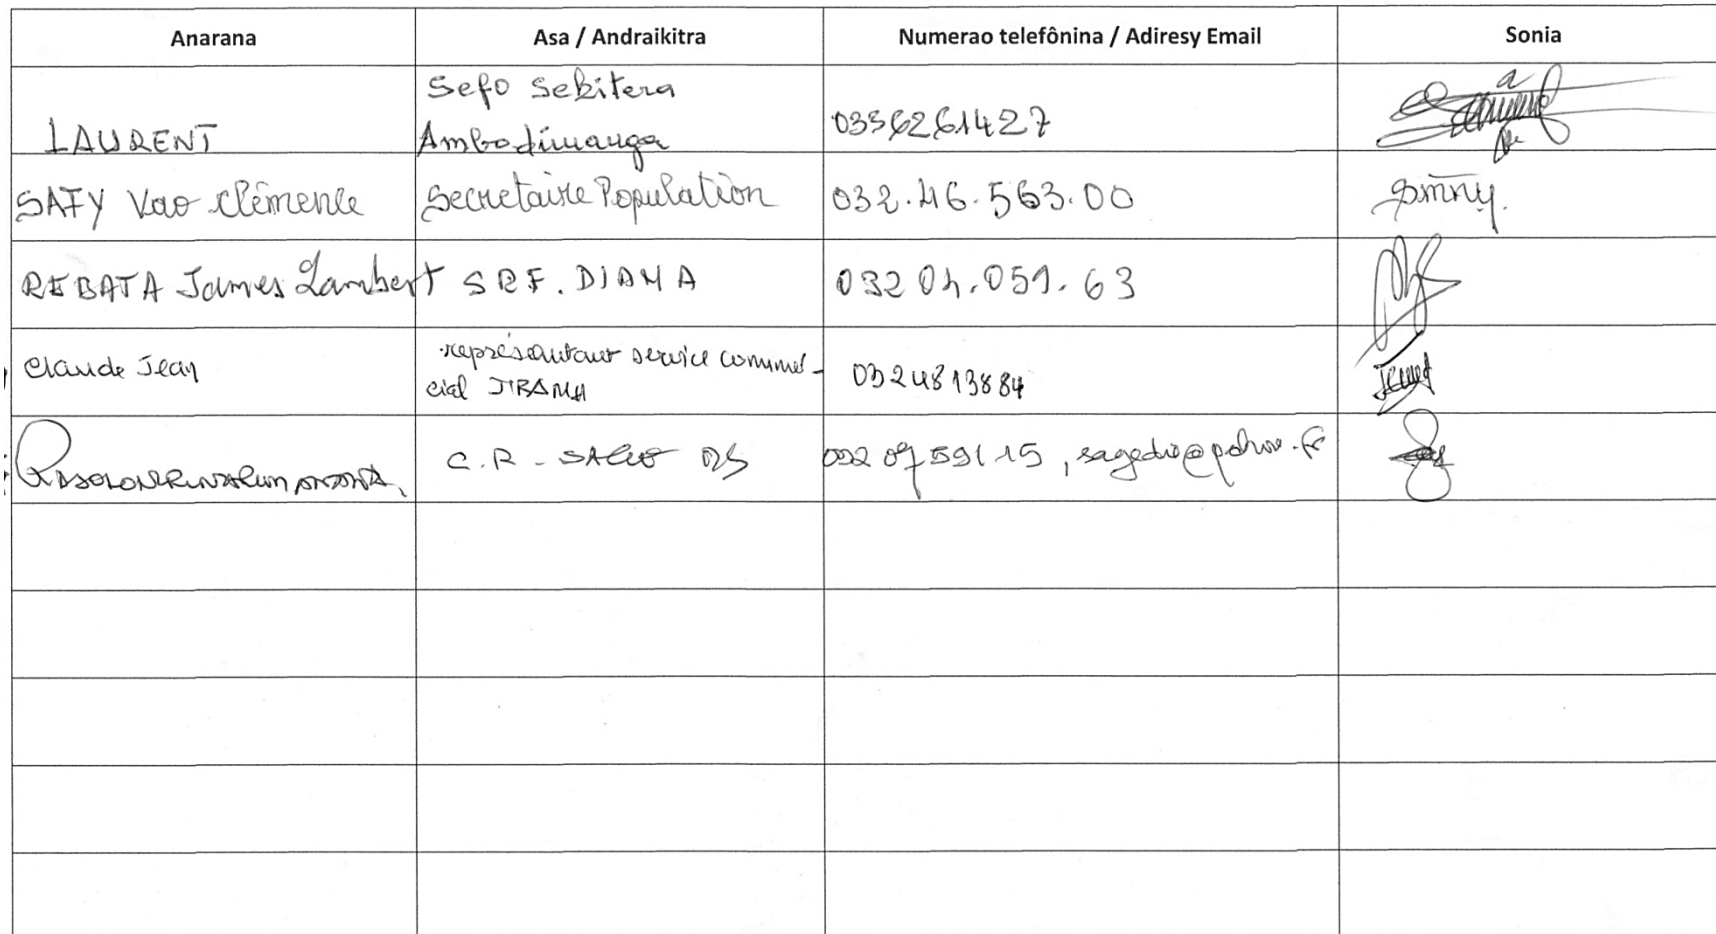 Anarana Asa / Andraikitra Numerao telefônina / Adiresy Email Sonia
Sefo Sekitera
LAURENT Ambodimanga 0336261427
SAFY Vao Clémence Secretaire Population 032.46.563.00
REBATA James Lambert SRF. DIANA 032 04.059.63
Claude Jean représentant service commer-
cial JIRAMA 0324813884
C.R - 032 07 591 15,